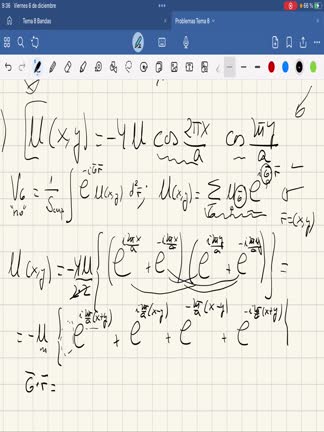 9:36 Viernes 6 de diciembre
66 %
Tema 8 Bandas
Problemas Tema 8
) [ U(x,y) = -4U cos 2πx/a cos 2πy/a
V_G = 1/S_cup ∫ e^{-iḠr̄} U(x,y) d²r̄ ; U(x,y) = Σ U_G e^{iḠr̄}
"no"
r̄=(x,y)
U(x,y) = -4U/2·2 { (e^{i2πx/a} + e^{-i2πx/a}) (e^{i2πy/a} + e^{-i2πy/a}) } =
= -U { e^{i2π/a(x+y)} + e^{i2π/a(x-y)} + e^{-i2π/a(x-y)} + e^{-i2π/a(x+y)} }
Ḡ·r̄ =